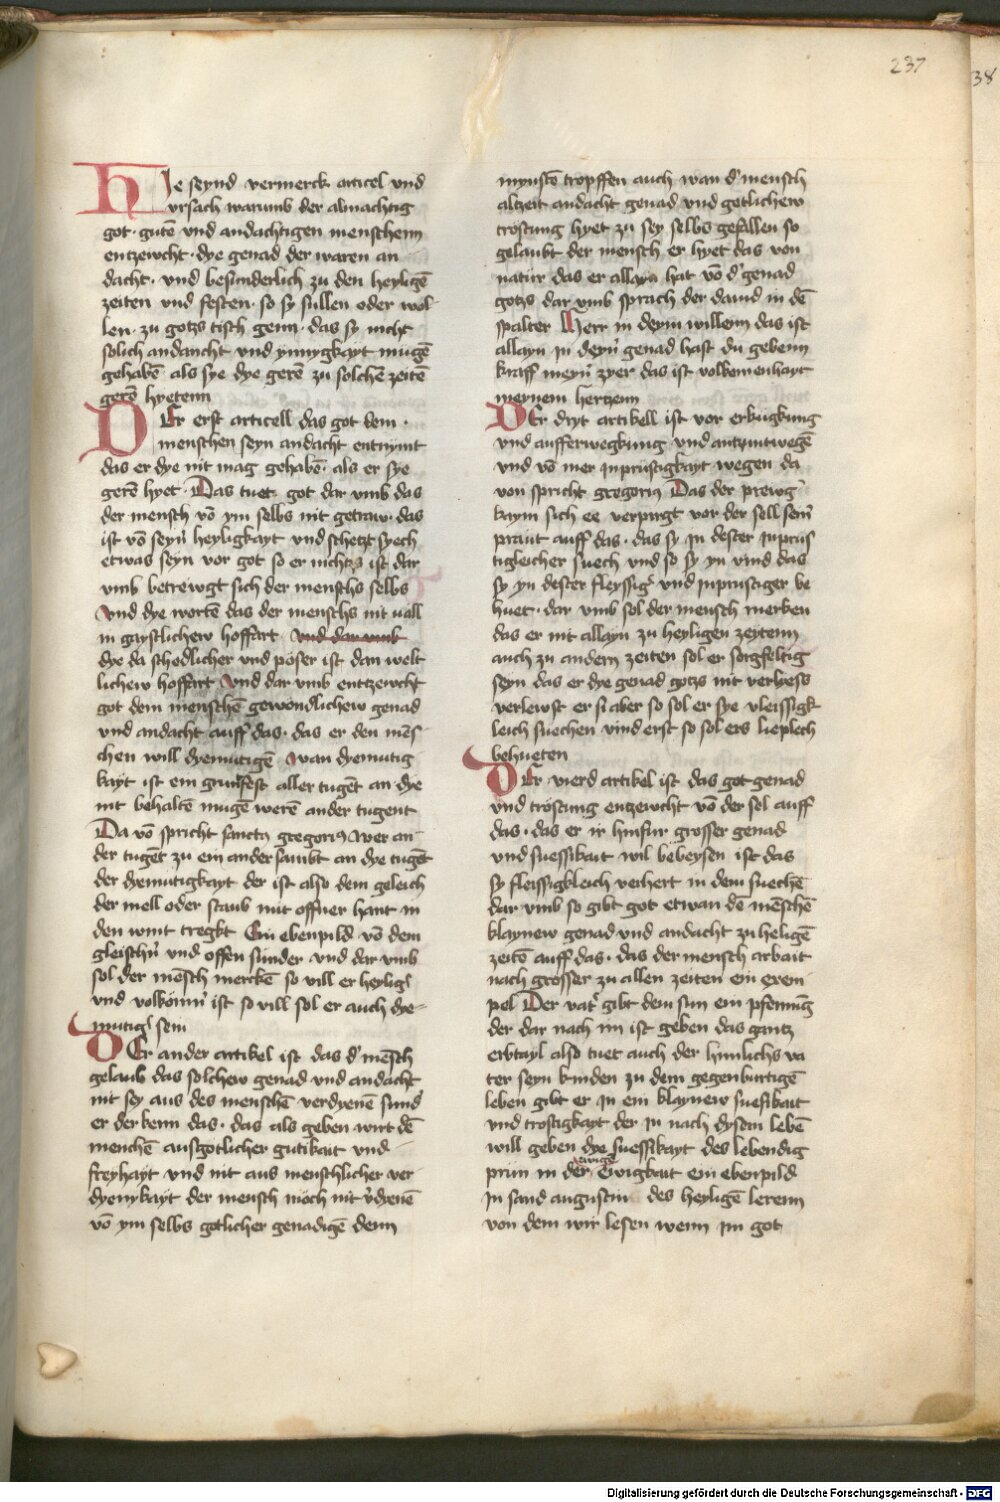 237
38
HIe seynd vermerck articel vnd
vrsach warumb der almachtig
got · gutē vnd andachtigen menschenn
entzewcht · dye genad der waren an
dacht · vnd besunderlich zu den heyligē
zeiten vnd festen · so sy sullen oder wol
len · zu gotzs tisch genn · das sy nicht
solich andancht vnd ynnygkayt mugē
gehabē als sye dye gerē zu solchē zeitē
gerē hyetenn
DEr erst articell das got dem ·
menschen seyn andacht entnymt
das er dye nit mag gehabē · als er sye
gerē hyet · Das tuet got dar vmb das
der mensch vō ym selbs nit getraw · das
ist vō seyn̄ heyligkayt vnd schetzt syech
etwas seyn vor got so er nichtzs ist dar
vmb betrewgt sich der menschs selbs
Vnd dye wortē das der menschs nit vall
in gaystlichew hoffart vnd dar vmb
dye da schedlicher vnd pöser ist dan welt
lichew hoffart Vnd dar vmb entzewcht
got dem menschē gewondlichew genad
vnd andacht auff das · das er den mēs
chen will dyemutigē Wan dyemutig
kayt ist ein gruntfest aller tugēt an dye
nit behaltē mugē werē ander tugent
Da vō spricht sanctꝰ gregoriꝰ Wer an
der tugēt zu ein ander sambt an dye tugēt
der dyemutigkayt der ist also dem geleich
der mell oder staub mit offner hant in
den wint tregkt Ein ebenpild vō dem
gleischn̄ vnd offen sunder vnd dar vmb
sol der mēsch merckē so vill er heyligʾ
vnd volkömn̄ ist so vill sol er auch dye
mutigʾ sein
DEr ander artikel ist das dʾ mēsch
gelaub das solchew genad vnd andacht
nit sey aus des menschē verdyenē sund
er derkenn das · das als geben wirt dē
menchē ausgotlicher gutikait vnd
freyhayt vnd nit aus menschlicher ver
dyenykayt der mensch mach nit v̄dyenē
vō ym selbs gotlicher genadigē denn
mynstē tropffen auch wan dʾ mensch
altzeit andacht genad vnd gotlichew
trostung hyet zu sey selbs gefallen so
gelaubt der mensch er hyet das von
natur das er allayn hat vō dʾ genad
gotzs dar vmb sprach der dauid in dē
spalter Herr in deym willenn das ist
allayn in deyn̄ genad hast du gebenn
kraff meyn̄ zyer das ist volkemenhayt
meynem hertzenn
DEr dryt artikell ist vor erkugkung
vnd aufferwegkung vnd antzuntwegē
vnd vō mer inprustigkayt wegen da
von spricht gregoriꝰ Das der prewgʾ
kaym sich ee verpirgt vor der sell sein̄
praut auff das · das sy in dester inprus
tigleicher suech vnd so sy yn vind das
sy yn dester fleyssigʾ vnd inprustiger be
huet · dar vmb sol der mensch merken
das er nit allayn zu heyligen zeytenn
auch zu andern zeiten sol er sorgfeltig
seyn das er dye genad gotzs nit verlyess
verlewst er si aber so sol er sye vleissigk
leich suechen vind erst so sol ers lieplech
behueten
DEr vierd artikel ist das got genad
vnd tröstung entzewcht vō der sel auff
das · das er ir hinfur grosser genad
vnd suessikait wil beweysen ist das
sy fleissigkleich veihert in dem suechē
dar vmb so gibt got etwan dē mēschē
klaynew genad vnd andacht zu heligē
zeitē auff das · das der mensch arbait
nach grosser zu allen zeiten ein exem
pel Der vatʾ gibt dem sun ein pfennig
der dar nach im ist geben das gantz
erbtayl also tuet auch der himlichs va
ter seyn kinden zu dem gegenburtigē
leben gibt er in ein klaynew suessikait
vnd trostigkayt der in nach dysem lebē
will geben dye suessikayt des lebendig
prun in der ewigē Ewigkait ein ebenpild
in sand augustin des heyligē lerenn
von dem wir lesen wenn im got
Digitalisierung gefördert durch die Deutsche Forschungsgemeinschaft - DFG